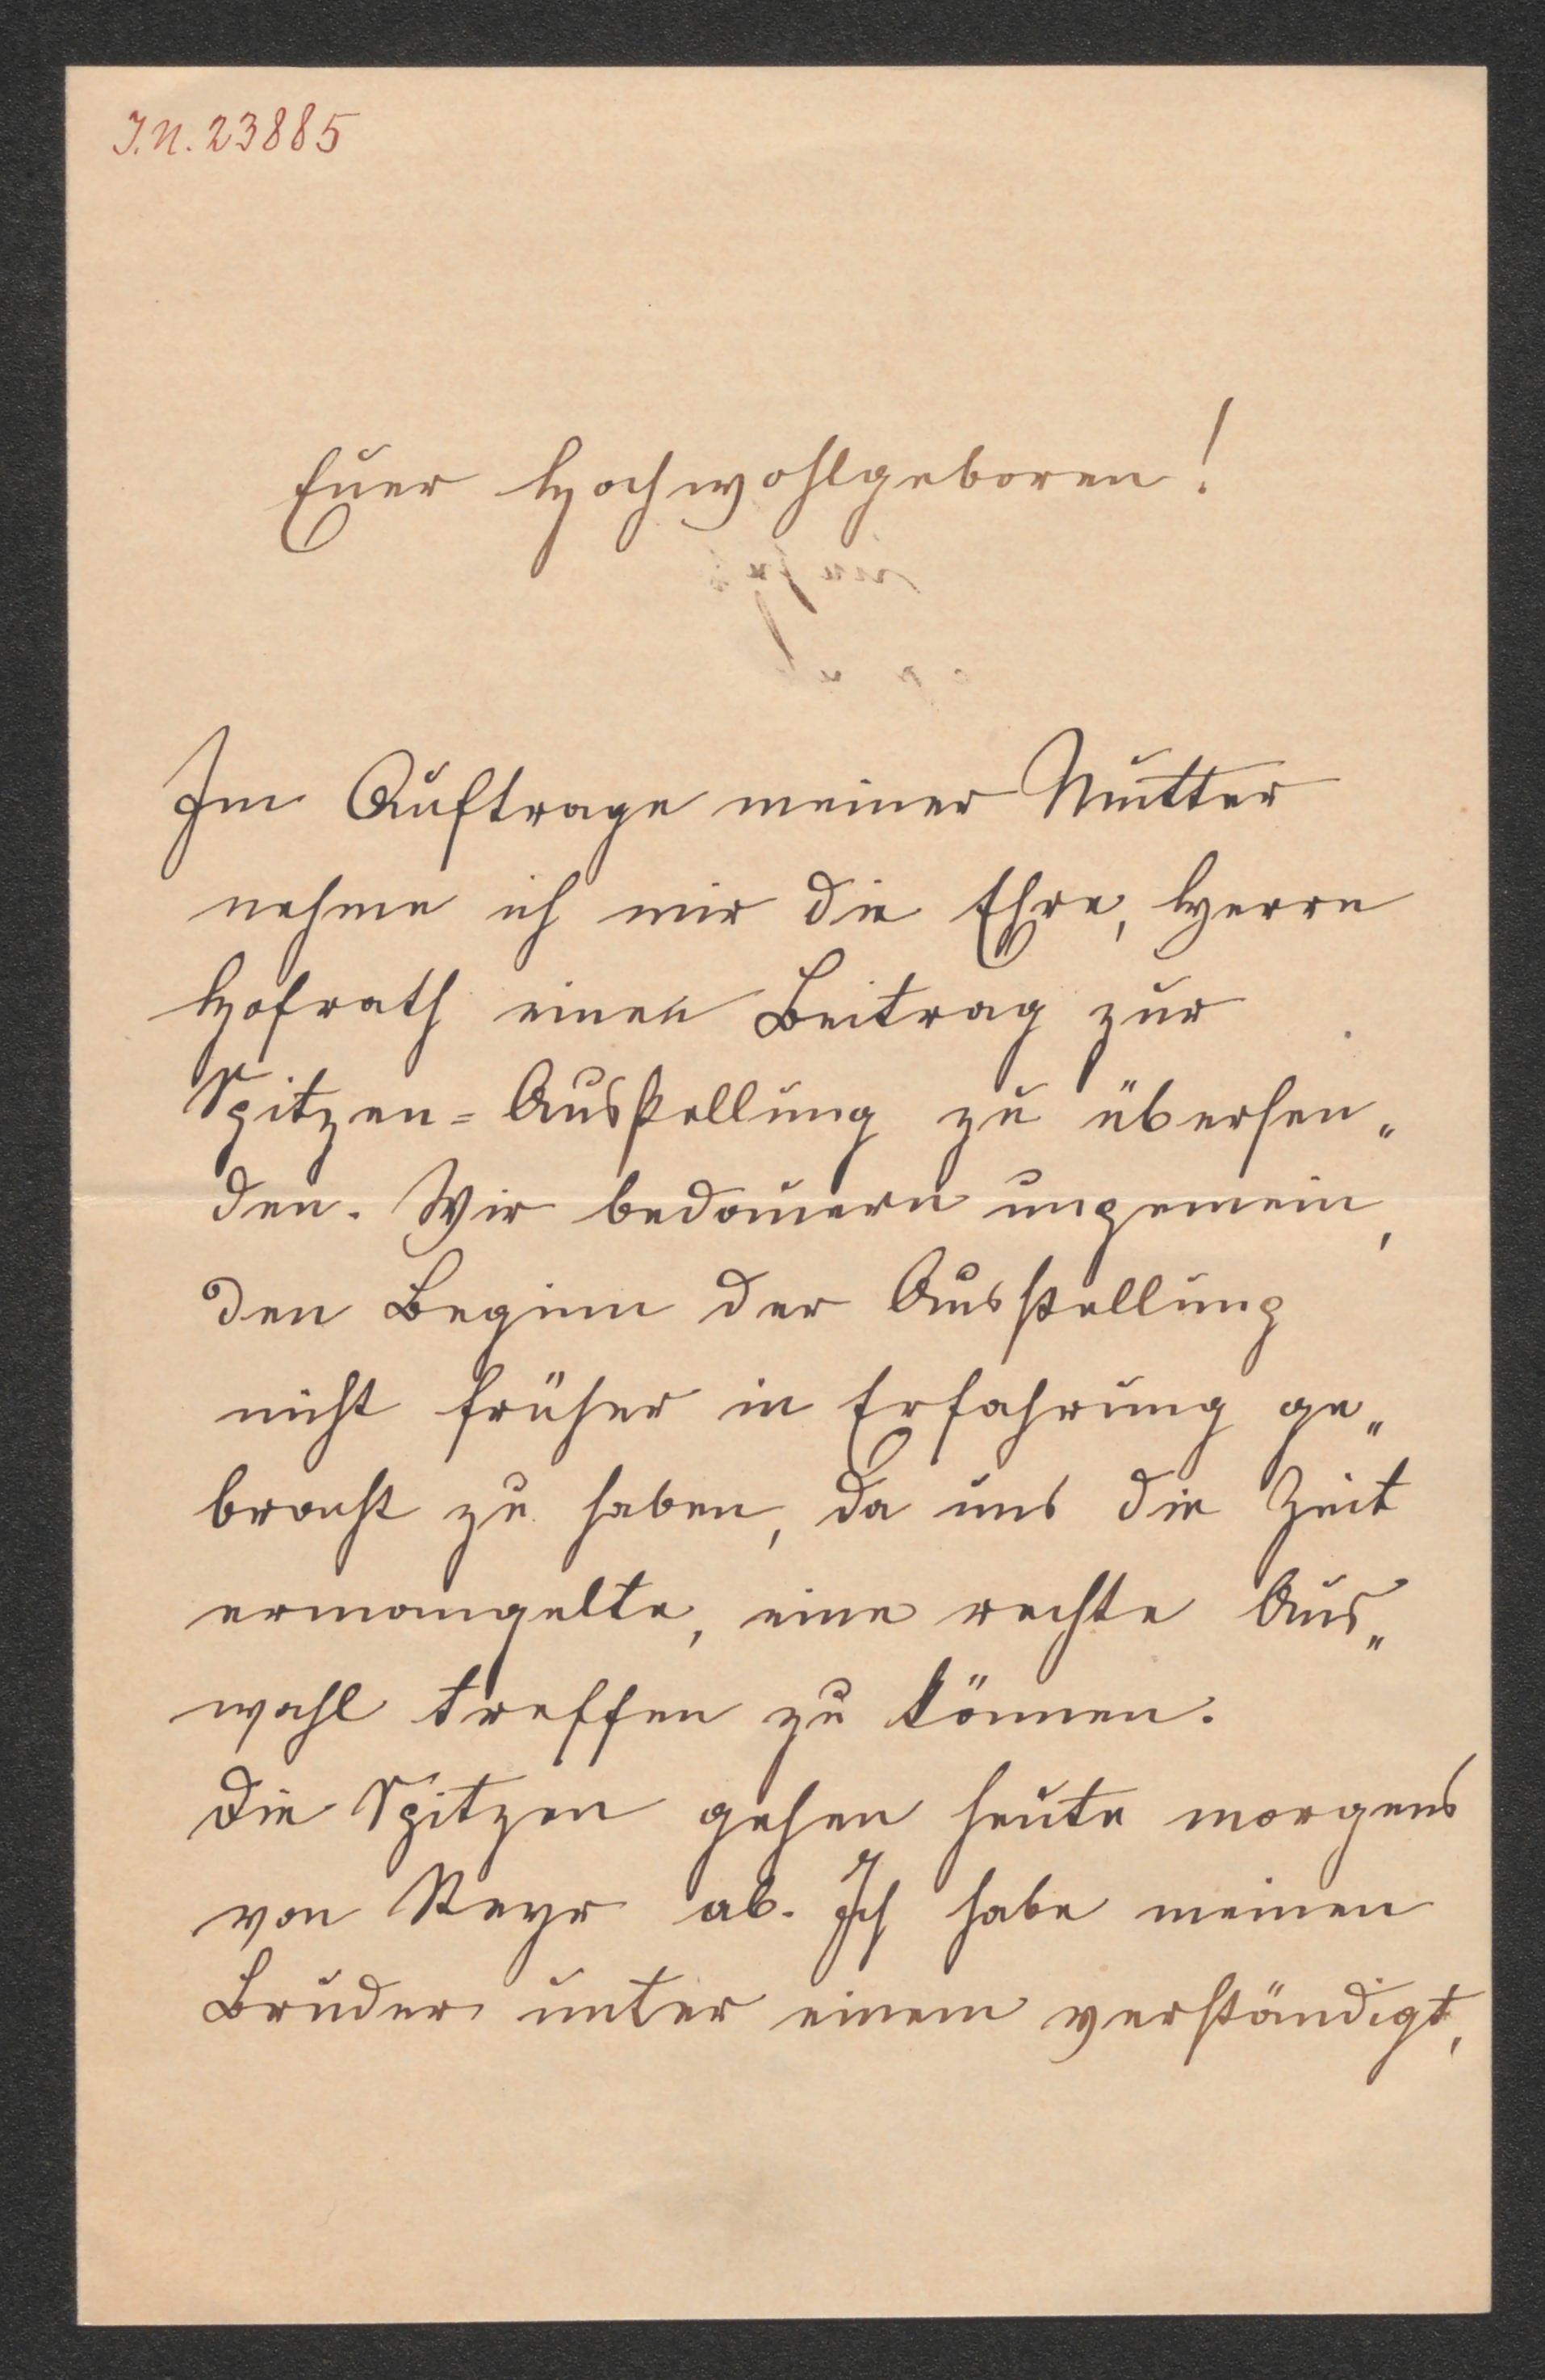 I.N. 23885
Euer Hochwohlgeboren!
Im Auftrage meiner Mutter
nehme ich mir die Ehre, Herrn
Hofrath einen Beitrag zur
Spitzen-Ausstellung zu übersen„
den. Wir bedauern ungemein,
den Beginn der Ausstellung
nicht früher in Erfahrung ge„
bracht zu haben, da uns die Zeit
ermangelte, eine rechte Aus„
wahl treffen zu können.
Die Spitzen gehen heute morgens
von Steyr ab. Ich habe meinen
Bruder unter einem verständigt,